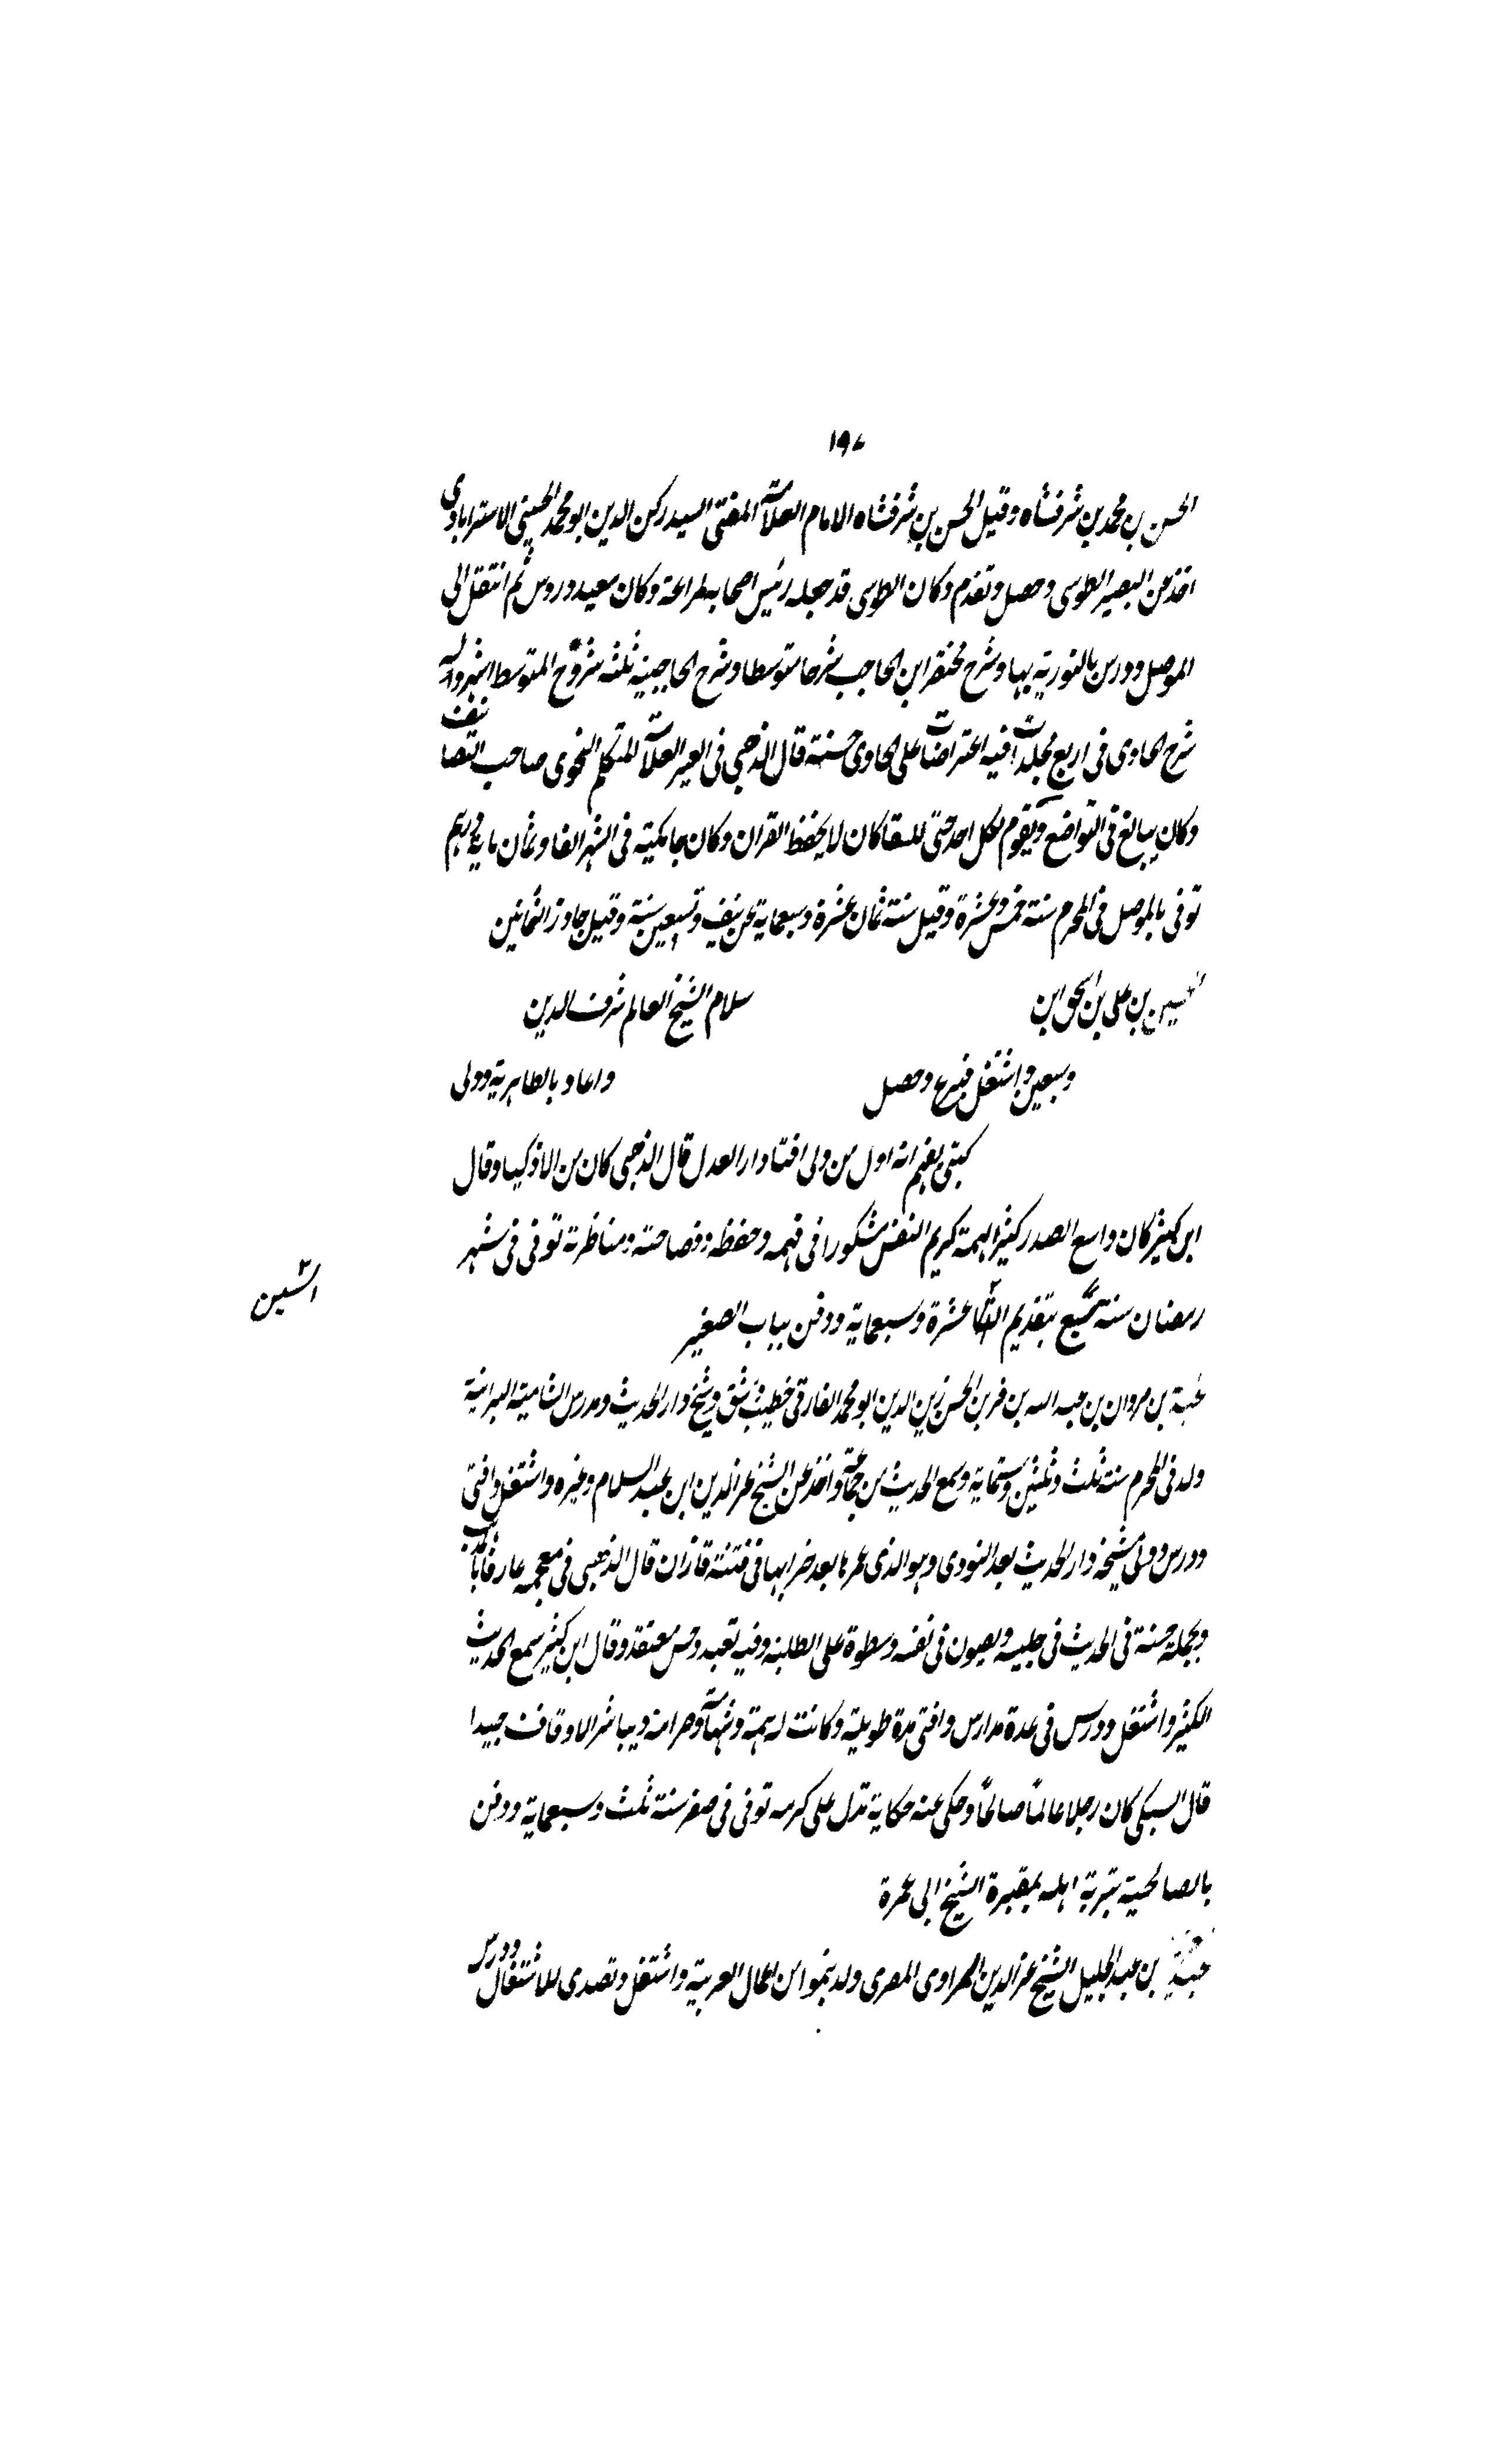 ١٩٧
الحسن بن محمد بن شرفشاه وقيل الحسن بن شرفشاه الامام العلامة المفتى السيد ركن الدين ابو محمد الحسينى الاسترابادى
اخذ عن النصير الطوسى وحصل وتقدم وكان الطوسى قد جعله رئيس اصحابه بمراغة وكان معيد دروس ثم انتقل الى
الموصل ودرس بالنورية بها وشرح مختصر ابن الحاجب شرحا متوسطا وشرح الحاجبية ثلثة شروح المتوسط اشهر وله
شرح الحاوى فى اربع مجلدات فيه اعتراضات على الحاوى حسنة قال الذهبى فى العبر العلامة المتكلم النحوى صاحب التصانيف
وكان يبالغ فى التواضع ويقوم لكل احد حتى للسقا كان لا يحفظ القران وكان جامكيته فى الشهر الفا وثمان ماية درهم
توفى بالموصل فى المحرم سنة خمس عشرة وقيل سنة ثمان عشرة وسبعماية عن نيف وسبعين سنة وقيل جاوز الثمانين
الحسين بن على بن اسحق ابن سلام الشيخ العالم شرف الدين
وسبعين واشتغل فبرع وحصل واعاد بالظاهرية وولى
انه اول من ولى افتا دار العدل قال الذهبى كان من الاذكيا وقال
ابن كثير كان واسع الصدر كثير الهمة كريم النفس مشكورا فى فهمه وحفظه وفصاحته ومناظرته توفى فى شهر
رمضان سنة سبع بتقديم السين عشرة وسبعماية ودفن بباب الصغير
السين
بن مروان بن عبد الله بن فر بن الحسن زين الدين ابو محمد الفارقى خطيب دمشق وشيخ دار الحديث ومدرس الشامية البرانية
ولد فى المحرم سنة ثلث وثلثين وستماية وسمع الحديث من جماعة واخذ عن الشيخ عز الدين ابن عبد السلام وغيره واشتغل وافتى
ودرس وولى مشيخة دار الحديث بعد النووى وهو الذى عمرها بعد خرابها فى فتنة قازان قال الذهبى فى معجمه عارفا بالمذهب
وبجملة حسنة فى الحديث فى جلبه وبصون فى نفسه وسطوة على الطلبة وفيه تعبد وحسن معتقد وقال ابن كثير سمع الحديث
الكثير واشتغل ودرس فى عدة مدارس وافتى مدة طويلة وكانت له همة وشهامة وصرامة ويباشر الاوقاف جيدا
قال السبكى كان رجلا عالما صالحا وحكى عنه حكاية تدل على كرمه توفى فى صفر سنة ثلث وسبعماية ودفن
بالصالحية بتربة اهله بمقبرة الشيخ ابى عمرة
بن عبد الجليل الشيخ عز الدين المصرى ولد من اعمال واشتغل وتصدى للاشتغال ودرس